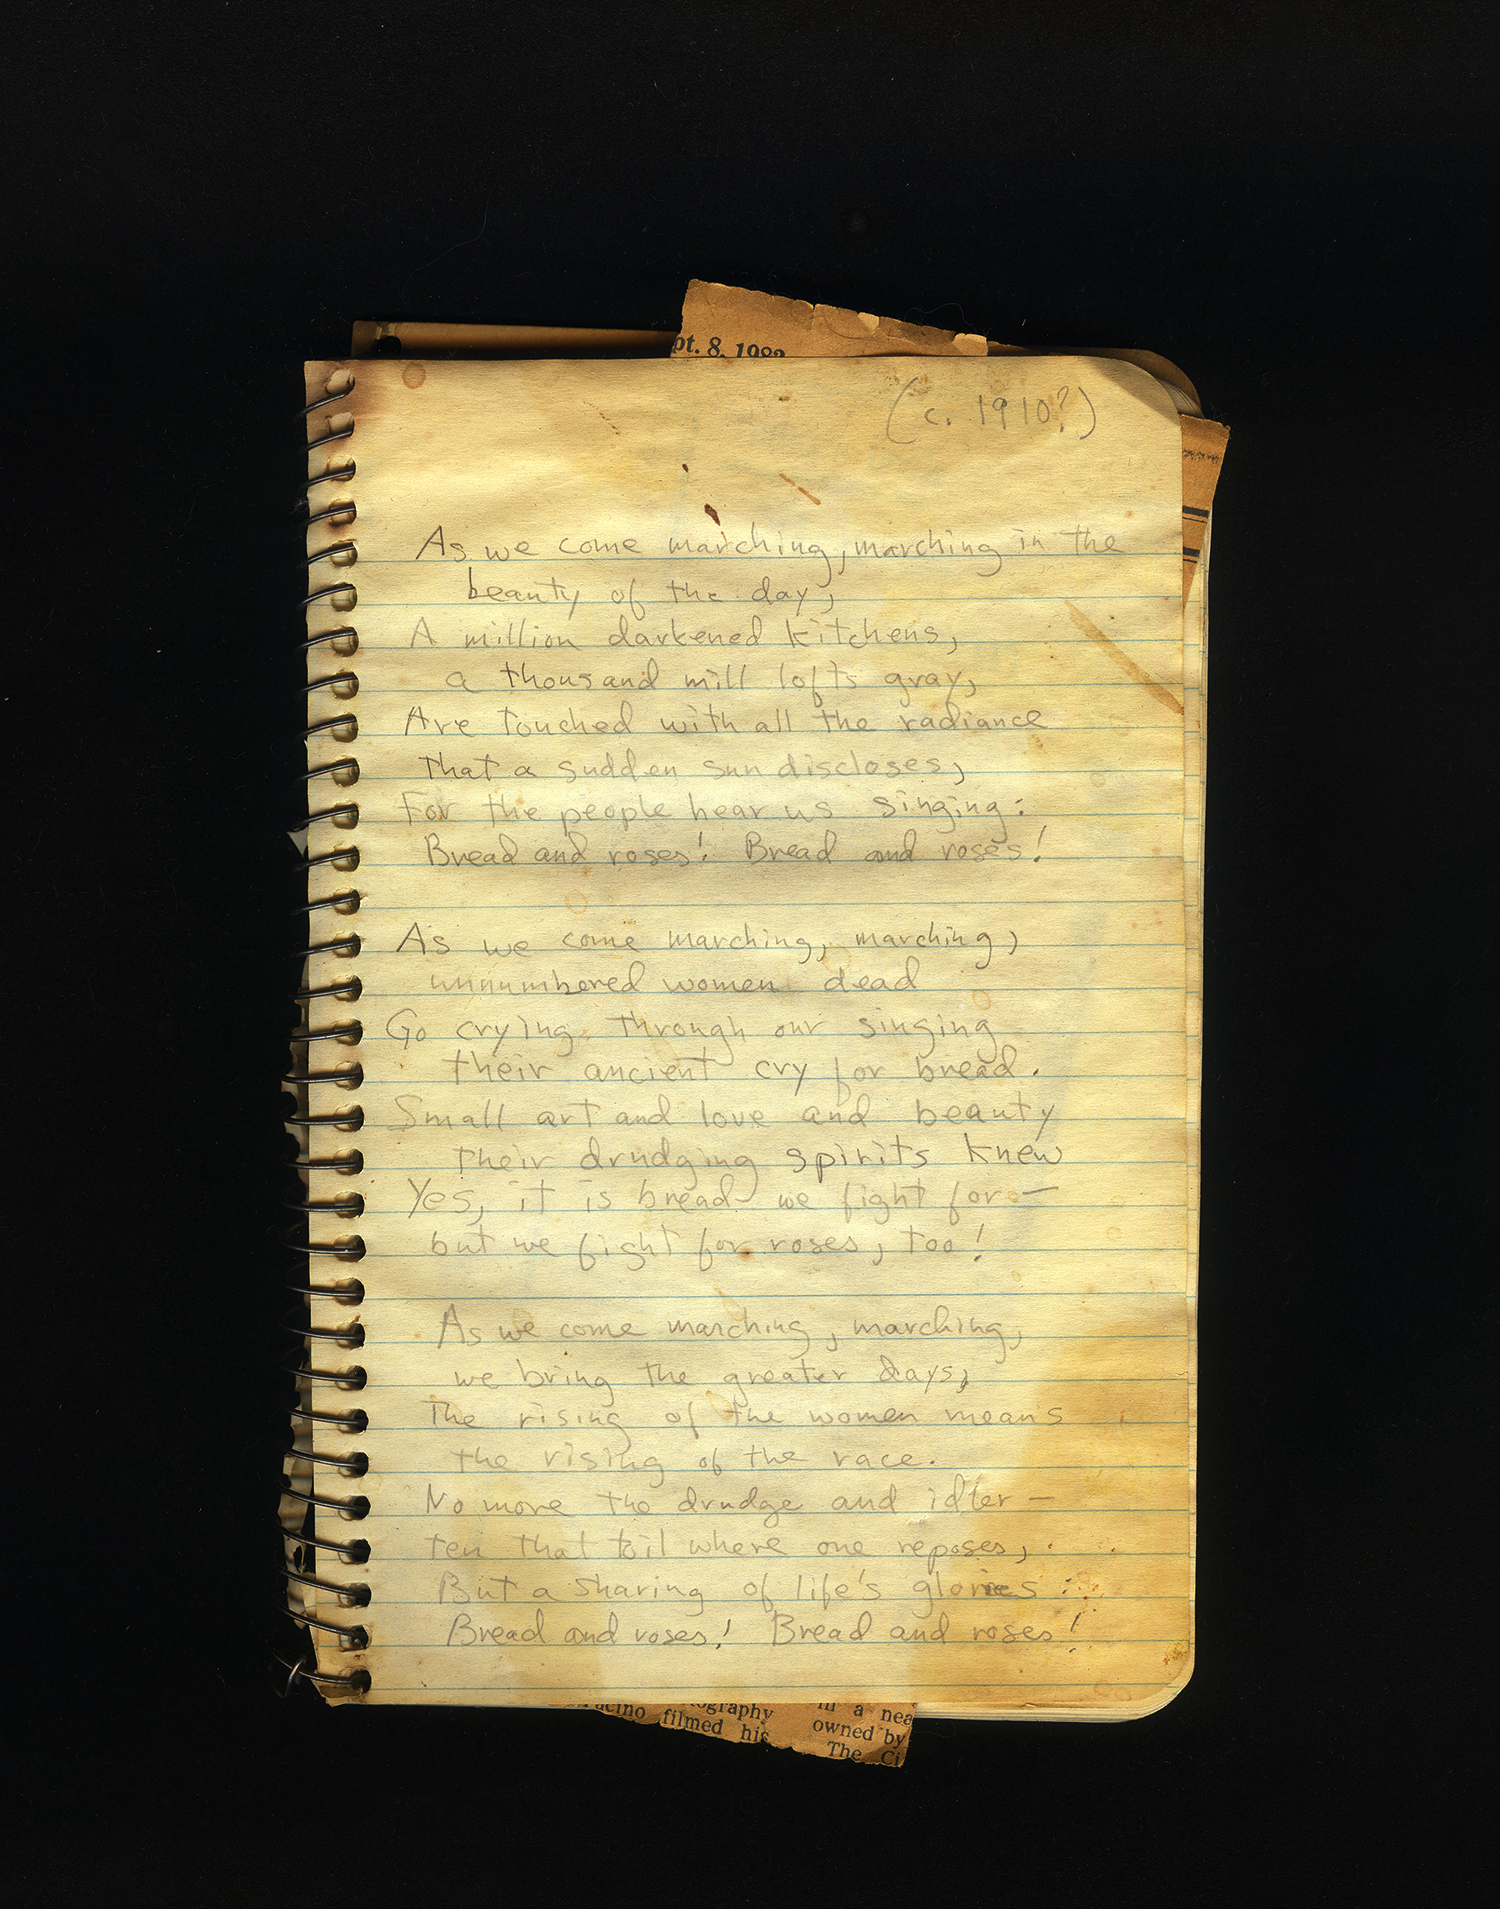 pt. 8, 1982
(c. 1910?)
As we come marching, marching in the
beauty of the day,
A million darkened kitchens,
a thousand mill lofts gray,
Are touched with all the radiance
that a sudden sun discloses,
For the people hear us singing:
Bread and roses! Bread and roses!
As we come marching, marching,
unnumbered women dead
Go crying through our singing
their ancient cry for bread.
Small art and love and beauty
their drudging spirits knew
Yes, it is bread we fight for —
but we fight for roses, too!
As we come marching, marching,
we bring the greater days,
The rising of the women means
the rising of the race.
No more the drudge and idler —
ten that toil where one reposes,
But a sharing of life's glories:
Bread and roses! Bread and roses!
acino ography in a nea
filmed his owned by
The Ci